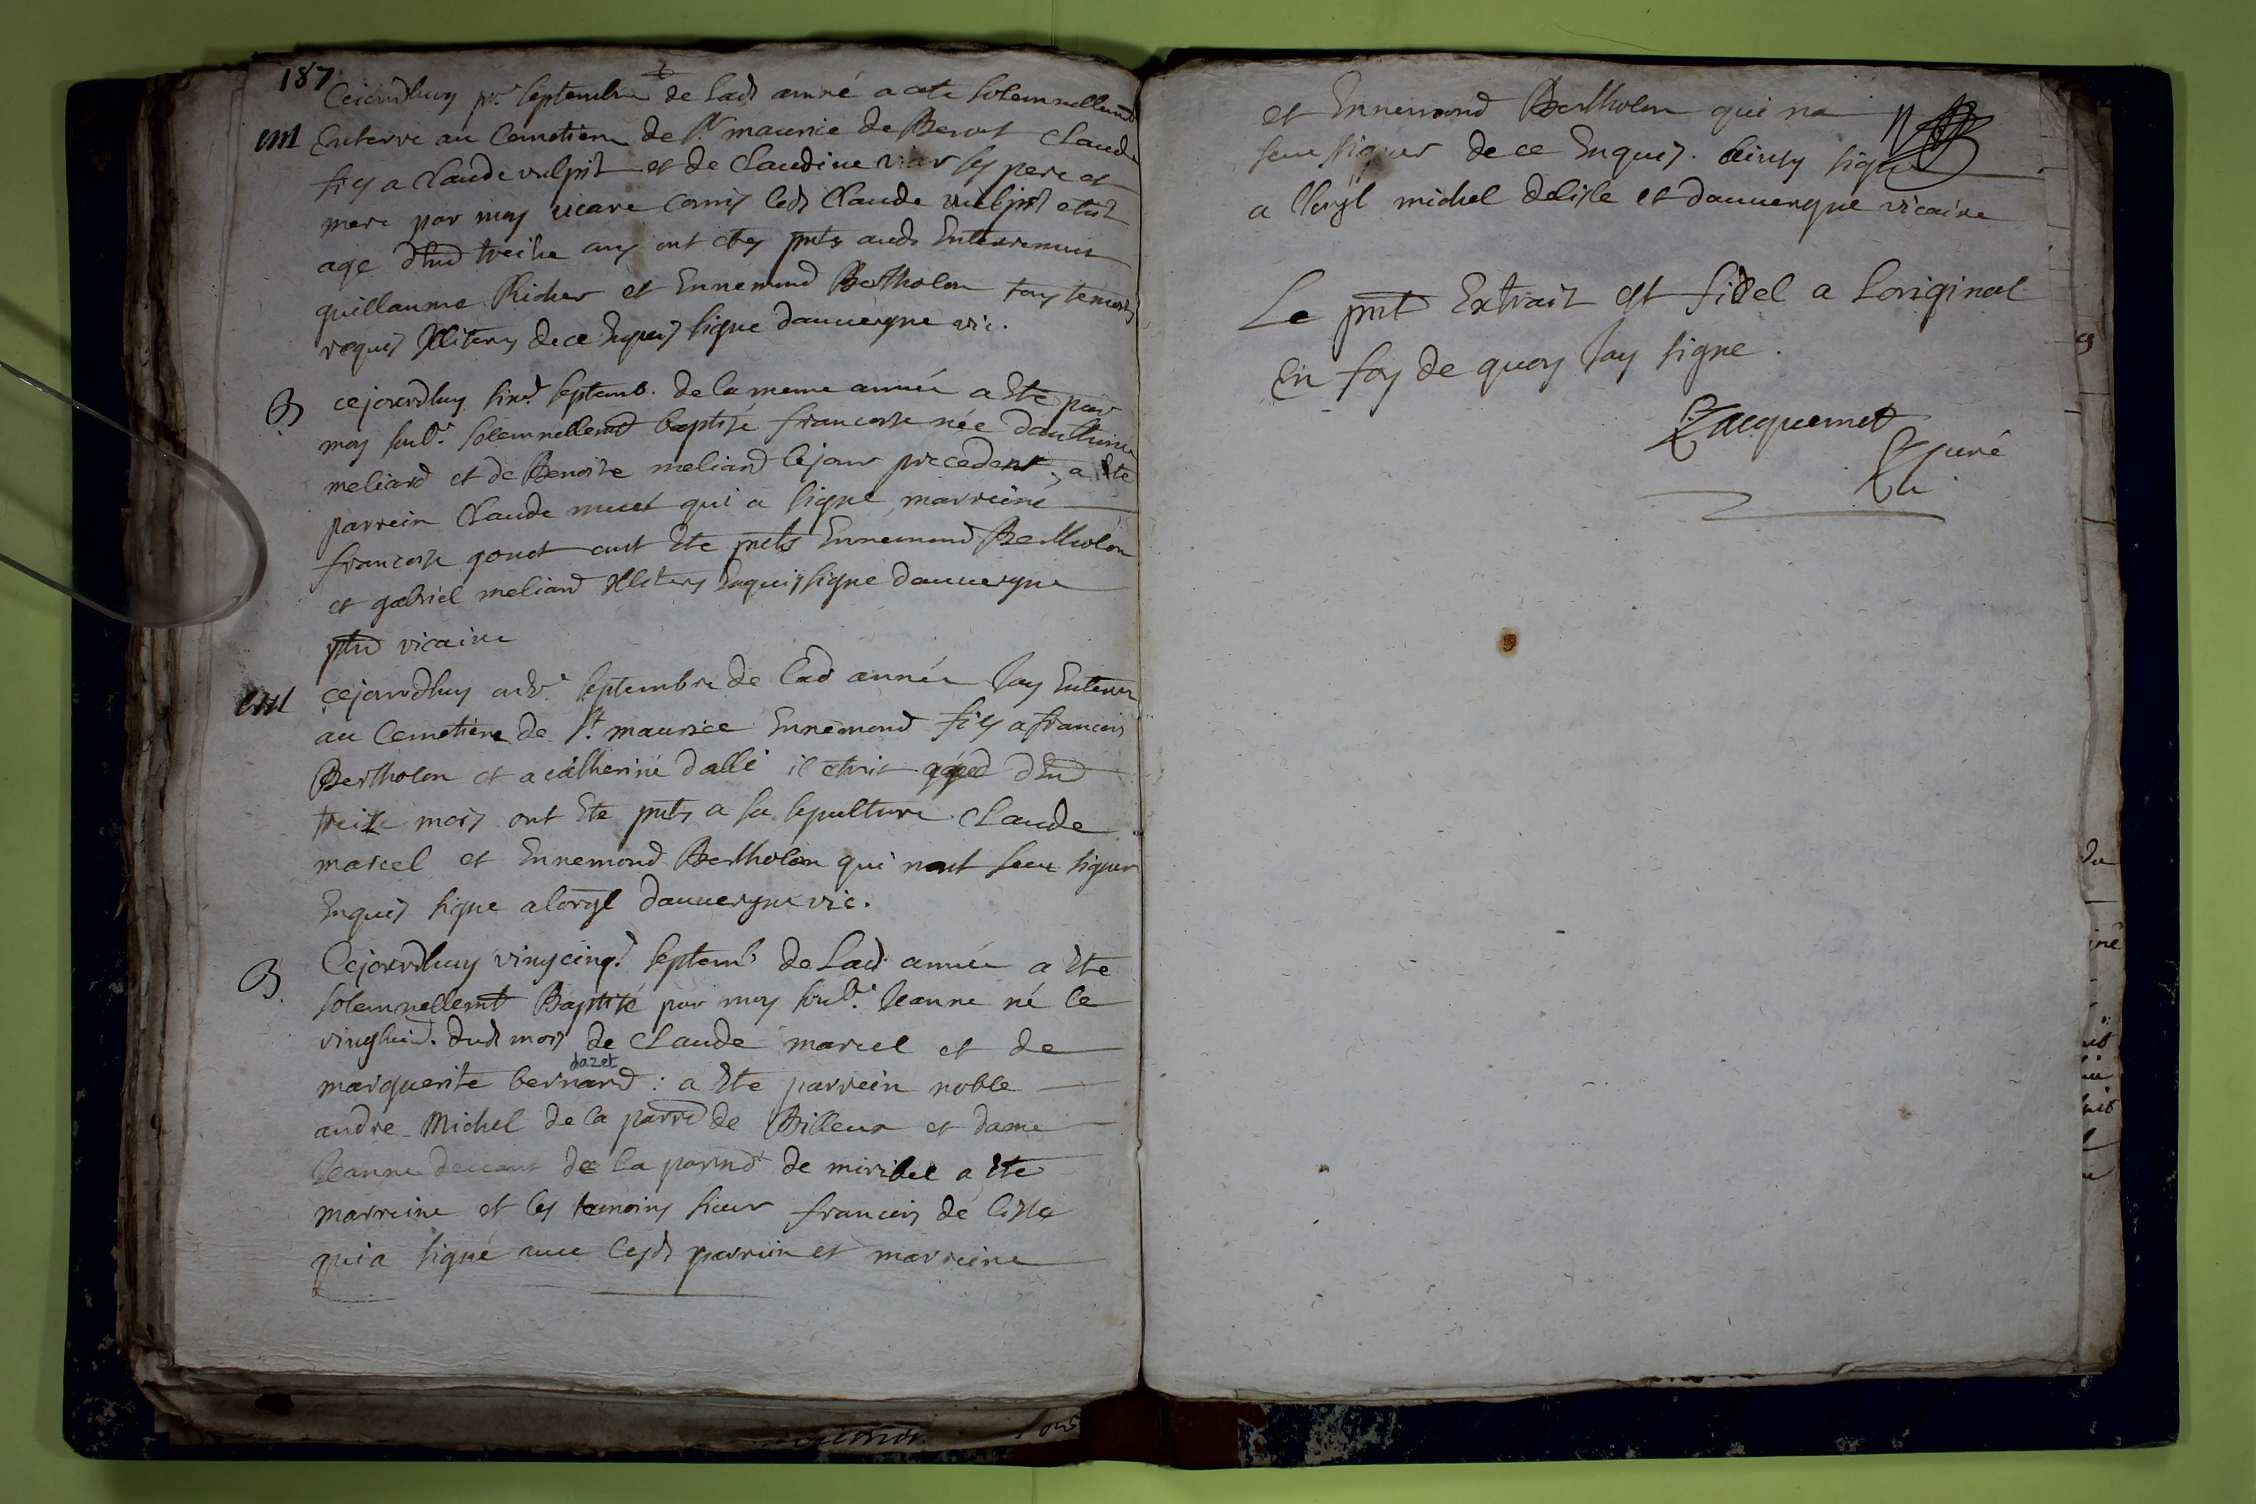 187
Cejourdhuy pr. septembre de lad année a ete solemnellemt
M Enterre au Cemetiere de St maurice de Benost Claude
fils a Claude vulpit et de Claudine viar ses pere et
mere par moy vicare comis led Claude vulpit etoit
age dEnd treize ans ont etes pnts aud Enterrement
guillaume Richer et Ennemond Bertholon tous temoins
requis Illiteres de ce Enquis signe dauuergne vic.
B cejourdhuy sixe septemb. de la meme année a Ete par
moy soub.e solemnellemt baptisé francoise née danthoine
meliard et de Benoite meliard le jour precedent, a Ete
parrein Claude muet qui a signe, marreine
francoise gonet ont Ete pnts Ennemond Bertholon
et gabriel meliard Illiteres Enquis signe dauuergne
ptre vicaire
M cejourdhuy septembre de lad année Jay Enterré
au Cemetiere de St. maurice Ennemond fils a francois
Bertholon et a catherine dalle il etoit agé dEnd
treize mois ont Ete pnts a sa sepulture Claude
marcel et Ennemond Bertholon qui nont sceu signer
Enquis signe a lorgl dauuergne vic.
B. Cejourdhuy vingcinq. septemb de Lad année a Ete
solemnellemt Baptisé par moy soub.e Jeanne né le
dud mois de Claude marcel et de
dazet
marguerite bernard : a Ete parrein noble
andre Michel de la parr de Billeux et dame
Jeanne de la de miribel a Ete
marreine et les temoins sieur francois de lisle
qui a signé auec lesds parrein et marreine
et Ennemond Bertholon qui na
sceu signer de ce Enquis. ainsy signe
a Lorgl michel delisle et dauuergne vicaire
Le pnt Extrait est fidel a Loriginal
En foy de quoy Jay signe.
Jacquemet
curé